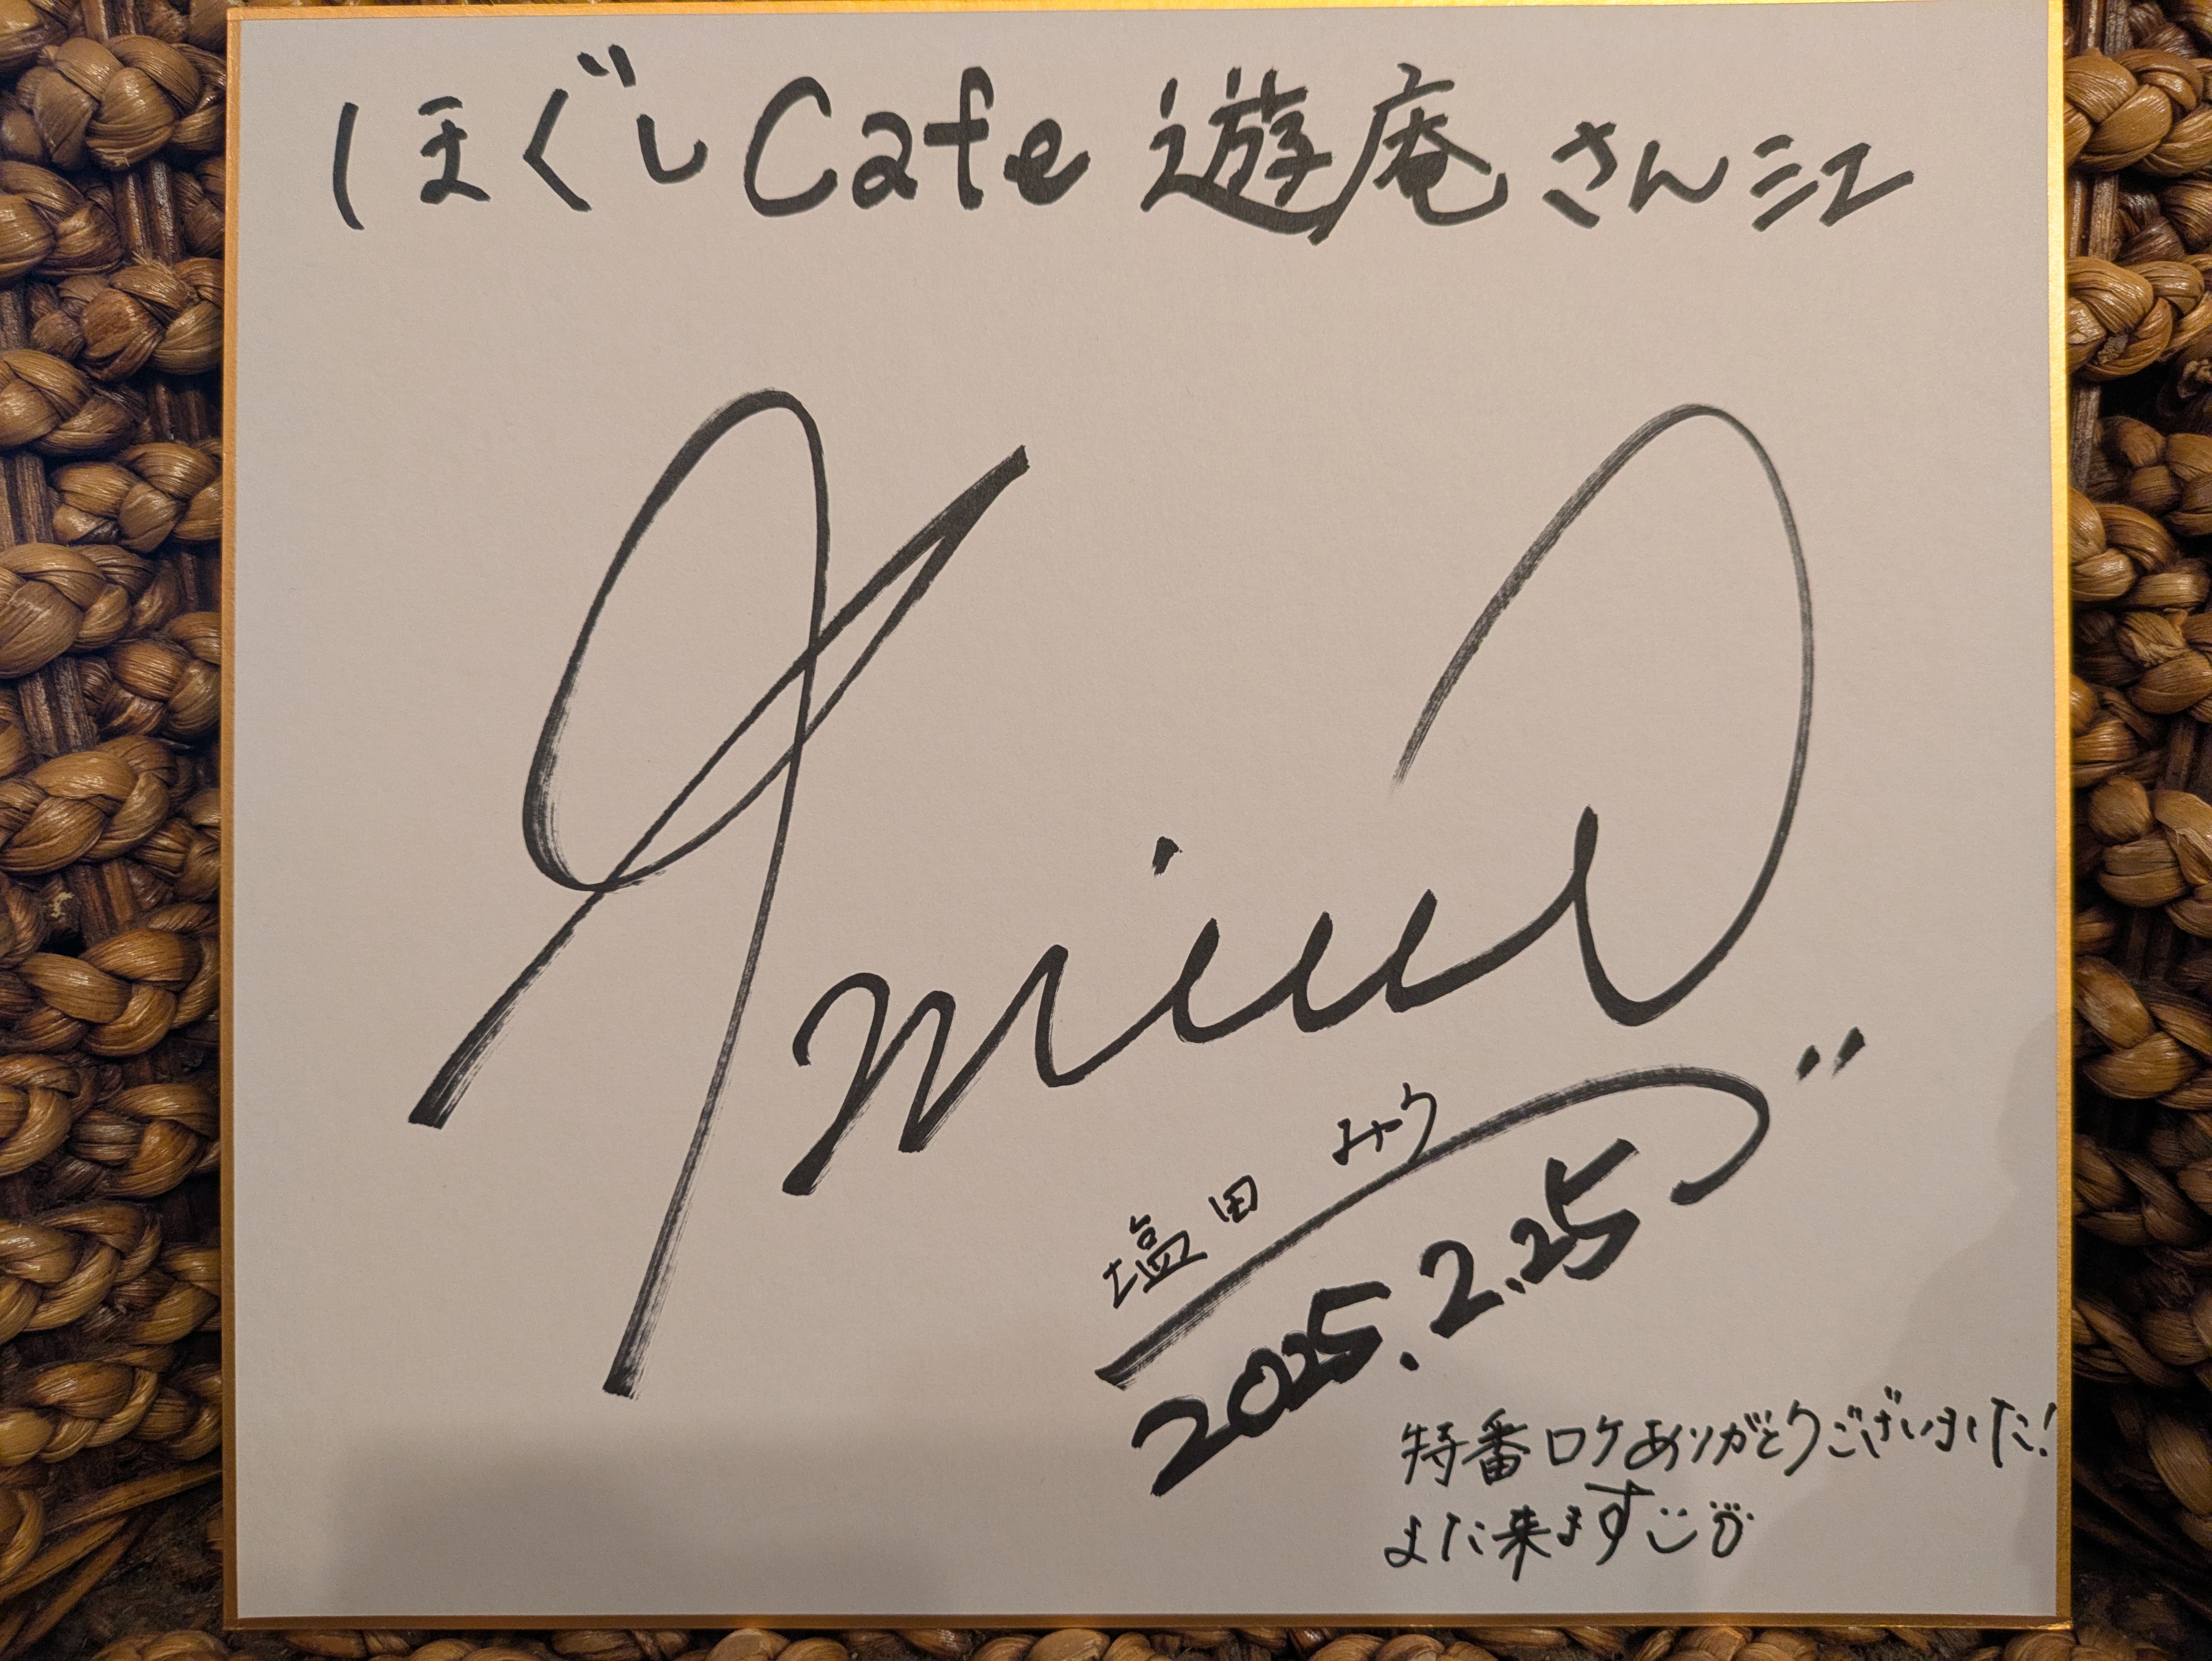 ほぐしCafe 遊庵さん江
miu
塩田 みう
2025.2.25
特番ロケありがとうございました!
また来ます